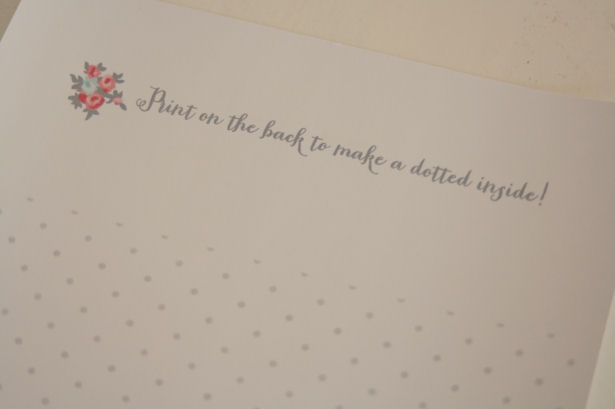 Print on the back to make a dotted inside!